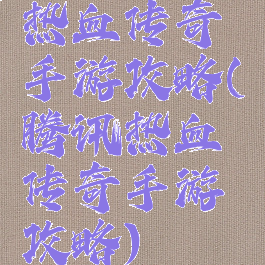 热血传奇
手游攻略(
腾讯热血
传奇手游
攻略)